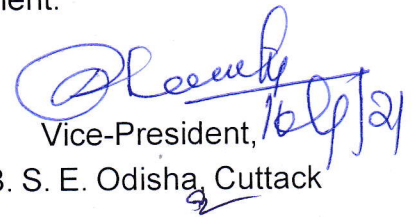 nent.
Vice-President,
B. S. E. Odisha, Cuttack